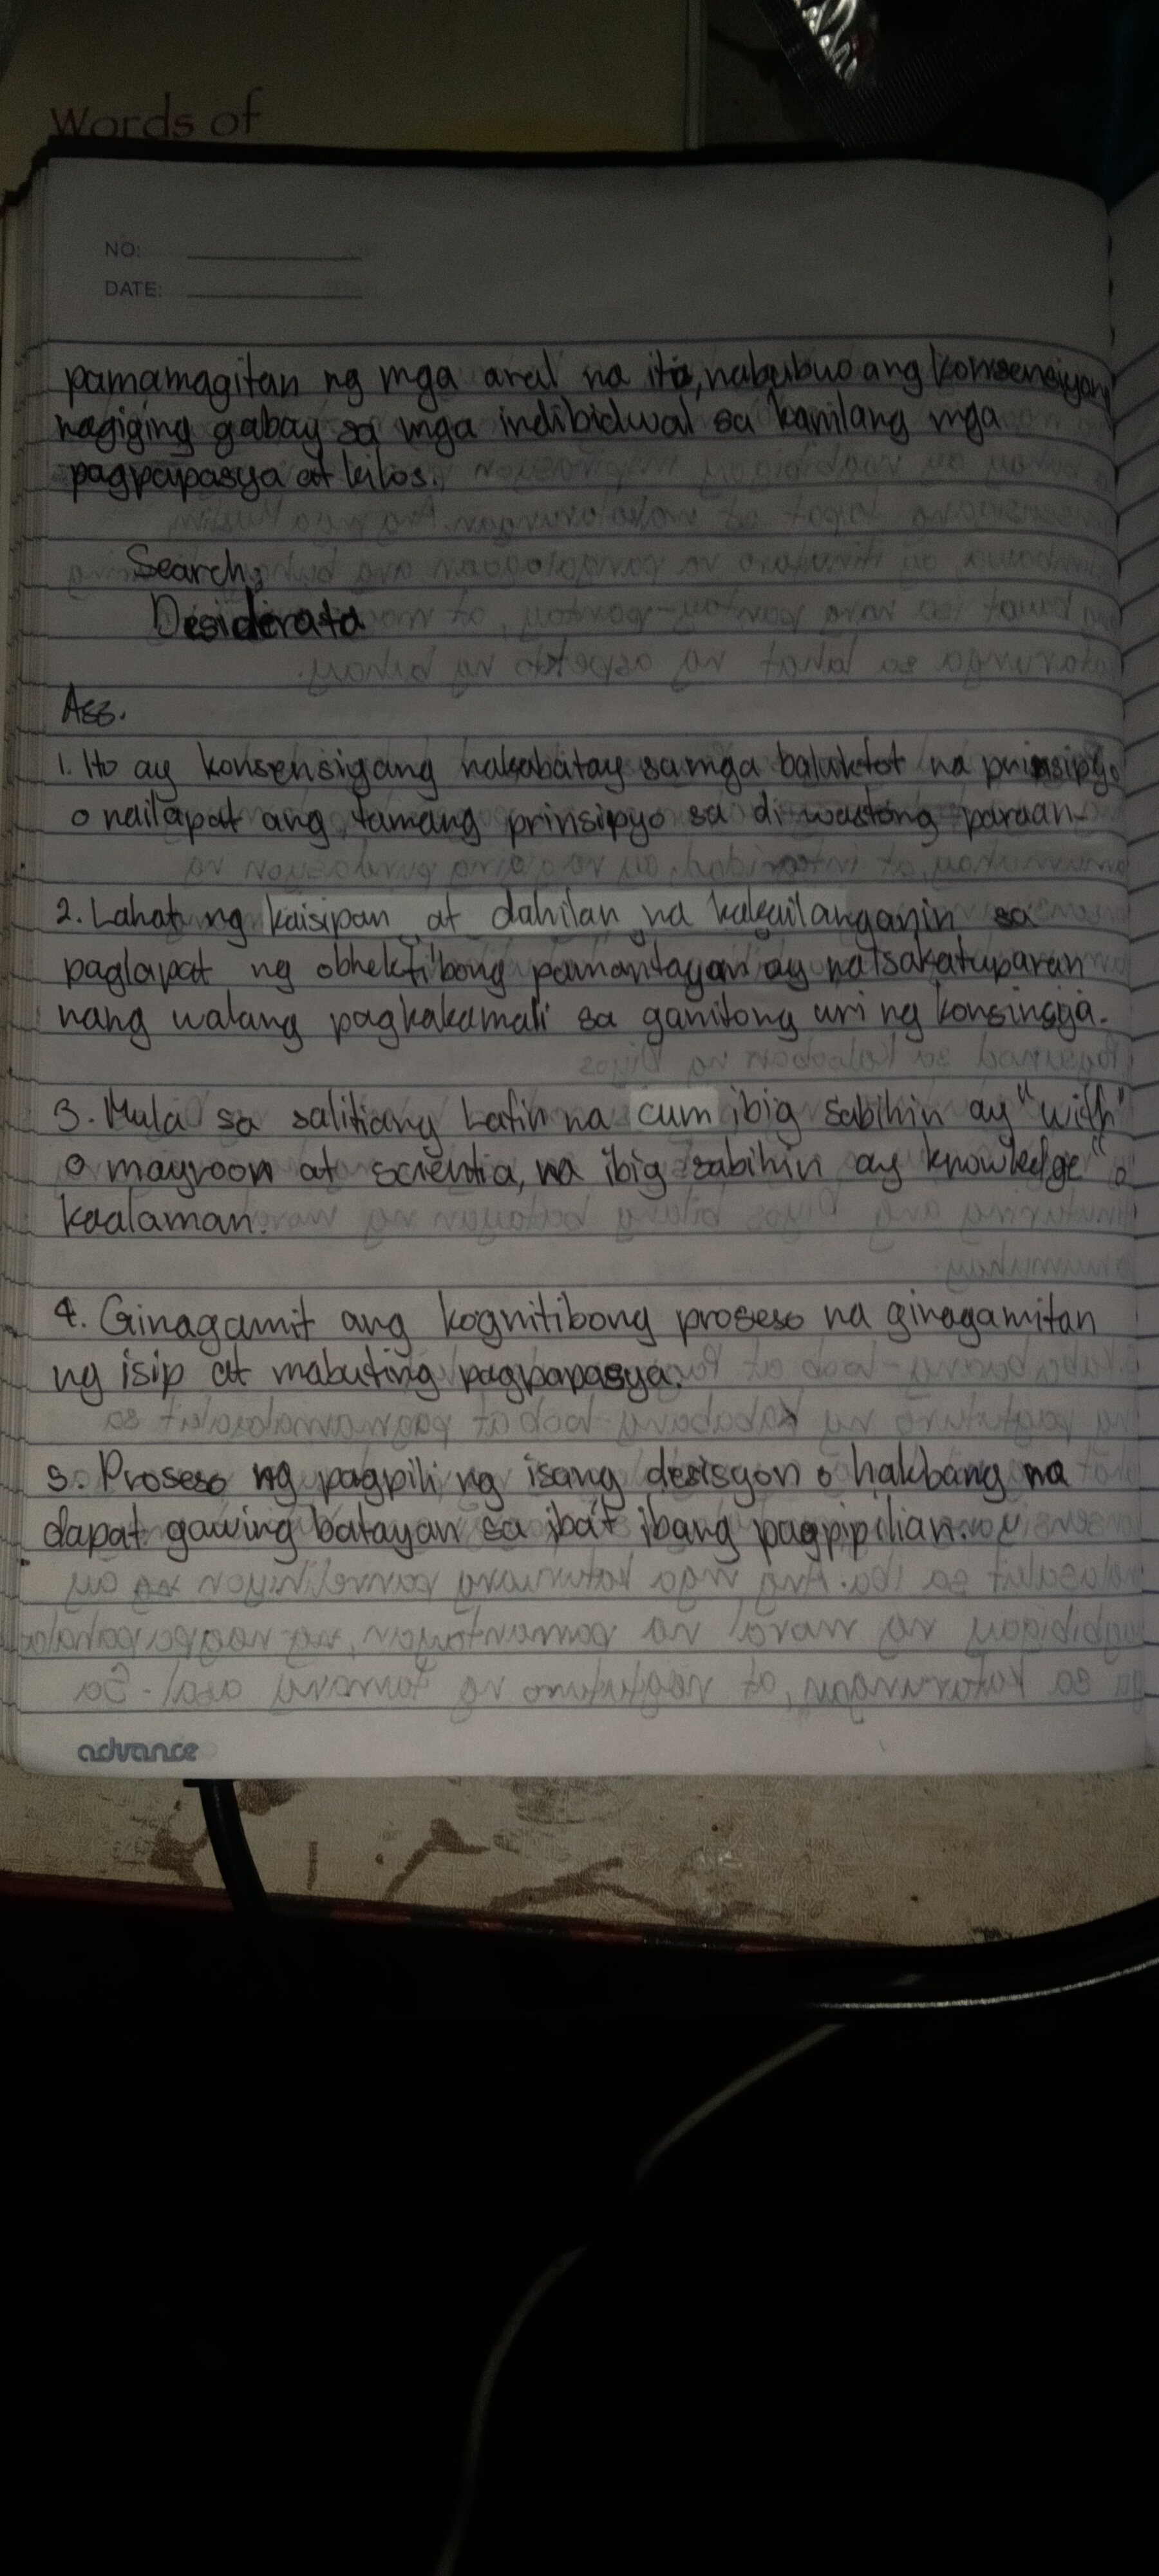 Words of
NO:
DATE:
pamamagitan ng mga aral na ito, nabubuo ang konsensiyang
nagiging gabay sa mga indibidwal sa kanilang mga
pagpapasya at kilos.
Search:
Desiderata
Ass.
1. Ito ay konsensiyang nakabatay sa mga baluktot na prinsipyo
o nailapat ang tamang prinsipyo sa di wastong paraan-
2. Lahat ng kaisipan at dahilan na kakailanganin sa
paglapat ng obhektibong pamantayan ay naisakatuparan
nang walang pagkakamali sa ganitong uri ng konsinsya.
3. Mula sa salitiang Latin na cum ibig sabihin ay "with"
o mayroon at scientia, na ibig sabihin ay knowledge" o
kaalaman.
4. Ginagamit ang kognitibong proseso na ginagamitan
ng isip at mabuting pagpapasya.
5. Proseso ng pagpili ng isang desisyon o hakbang na
dapat gawing batayan sa iba't ibang pagpipilian.
advance